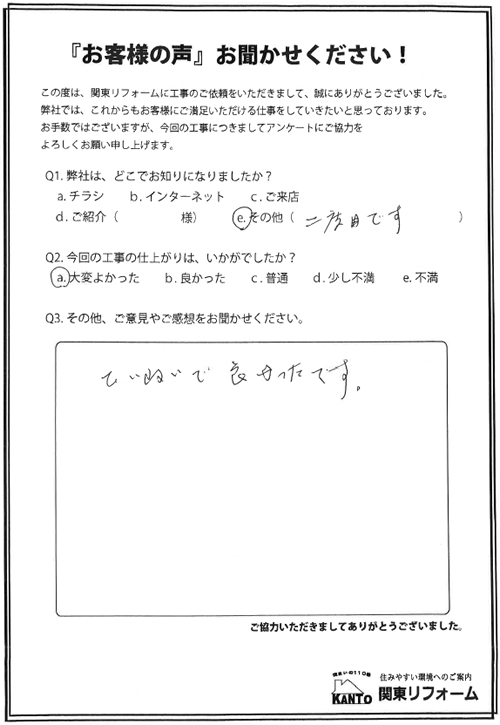 『お客様の声』お聞かせください！
この度は、関東リフォームに工事のご依頼をいただきまして、誠にありがとうございました。
弊社では、これからもお客様にご満足いただける仕事をしていきたいと思っております。
お手数ではございますが、今回の工事につきましてアンケートにご協力を
よろしくお願い申し上げます。
Q1. 弊社は、どこでお知りになりましたか？
a. チラシ　b. インターネット　c. ご来店
d. ご紹介（　　　　様）　e. その他（ 二度目です ）
Q2. 今回の工事の仕上がりは、いかがでしたか？
a. 大変よかった　b. 良かった　c. 普通　d. 少し不満　e. 不満
Q3. その他、ご意見やご感想をお聞かせください。
ていねいで良かったです。
ご協力いただきましてありがとうございました。
住まいの110番
KANTO
住みやすい環境へのご案内
関東リフォーム